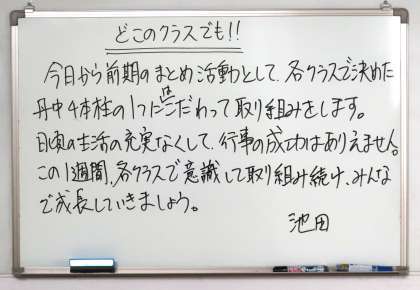 どこのクラスでも!!
今日から前期のまとめ活動として、各クラスで決めた
丹中4本柱の1つにこだわって取り組みをします。
日頃の生活の充実なくして、行事の成功はありえません。
この1週間、各クラスで意識して取り組み続け、みんな
で成長していきましょう。
池田